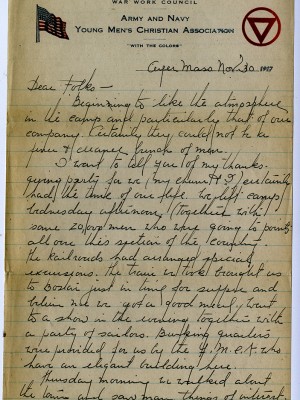 WAR WORK COUNCIL
ARMY AND NAVY
YOUNG MEN'S CHRISTIAN ASSOCIATION
"WITH THE COLORS"
Ayer Mass Nov. 30 1917
Dear Folks —
Beginning to like the atmosphere
in the camp and particularly that of our
company. Certainly they could not be a
finer & cleaner bunch of men.
I want to tell you of my thanks-
giving party for we (my chum & I) certainly
had the time of our life. We left camp
Wednesday afternoon (together with
some 20,000 men who were going to points
all over this section of the country.
The railroads had arranged special
excursions. The train we took brought us
to Boston just in time for supper and
believe me we got a good meal, went
to a show in the evening together with
a party of sailors. Bunking quarters
were provided for us by the Y.M.C.A. who
have an elegant building here.
Thursday morning we walked about
the town and saw many things of interest.